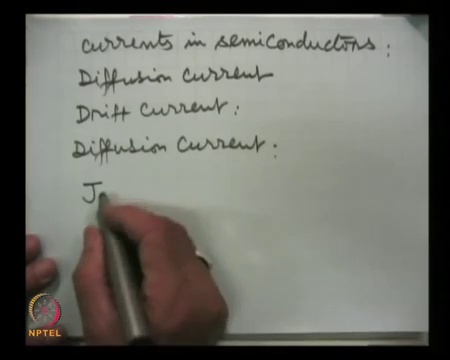 Currents in semiconductors:
Diffusion Current
Drift Current:
Diffusion Current:
J
NPTEL